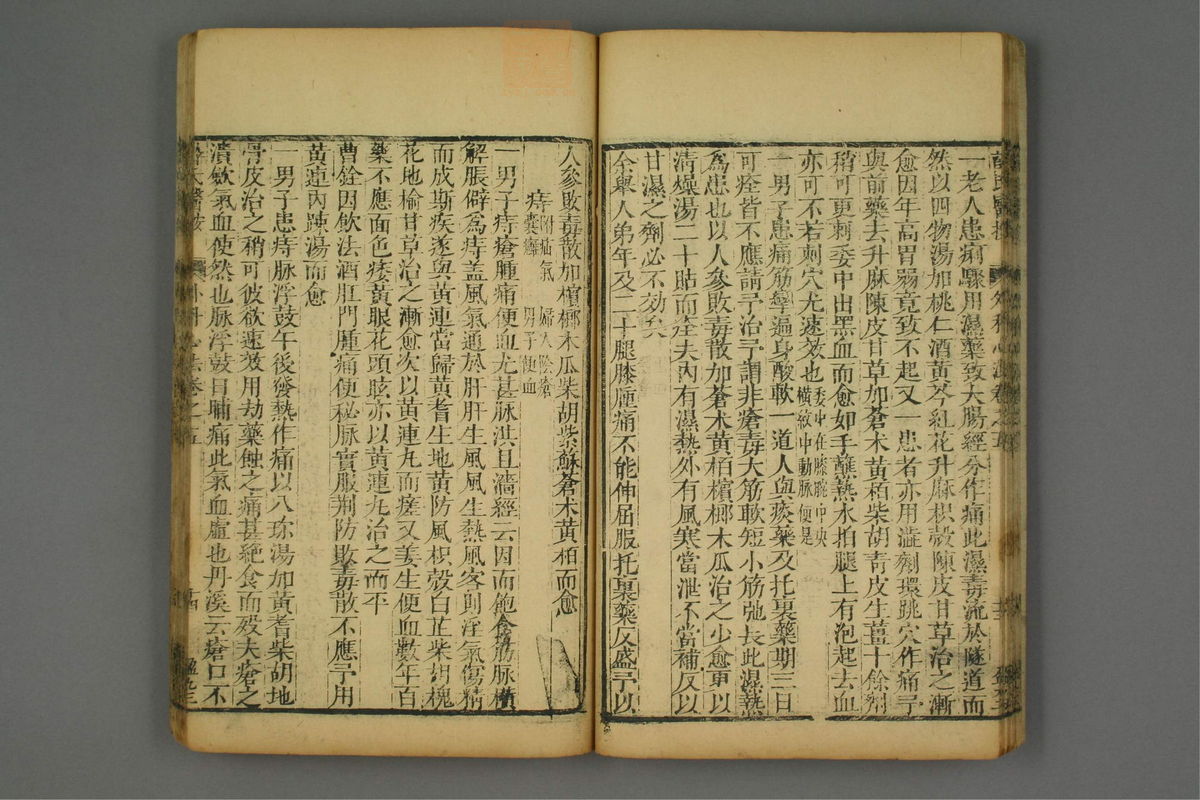 一老人患痢驟用濕藥致大腸經分作痛此濕毒流於隧道而
然以四物湯加桃仁酒黃芩紅花升麻枳殼陳皮甘草治之漸
愈因年高胃弱竟致不起又一患者亦用澁劑環跳穴作痛予
與前藥去升麻陳皮甘草加蒼术黃栢柴胡青皮生薑十餘劑
稍可更刺委中出黑血而愈如手蘸熱水拍腿上有泡起去血
亦可不若刺穴尤速效也委中在膝腕中央
橫紋中動脉便是
一男子患痛筋攣遍身酸軟一道人與痰藥及托裏藥期三日
可痊皆不應請予治予謂非瘡毒大筋軟短小筋弛長此濕熱
為患也以人參敗毒散加蒼术黃栢檳榔木瓜治之少愈更以
清燥湯二十貼而痊夫內有濕熱外有風寒當泄不當補反以
甘濕之劑必不効矣
余舉人弟年及二十腿膝腫痛不能伸屈服托裏藥反盛予以
人參敗毒散加檳榔木瓜柴胡紫蘇蒼术黃栢而愈
痔附疝氣 婦人陰瘡
囊癰 男子便血
一男子痔瘡腫痛便血尤甚脉洪且濇經云因而飽食筋脉橫
解腸僻為痔盖風氣通於肝肝生風風生熱風客則淫氣傷精
而成斯疾遂與黃連當歸黃耆生地黃防風枳殼白芷柴胡槐
花地榆甘草治之漸愈次以黃連丸而瘥又姜生便血數年百
藥不應面色痿黃眼花頭眩亦以黃連丸治之而平
曹銓因飲法酒肛門腫痛便秘脉實服荆防敗毒散不應予用
黃連內踈湯而愈
一男子患痔脉浮鼓午後發熱作痛以八珍湯加黃耆柴胡地
骨皮治之稍可彼欲速效用劫藥蝕之痛甚絕食而殁夫瘡之
潰歛氣血使然也脉浮鼓日晡痛此氣血虛也丹溪云瘡口不